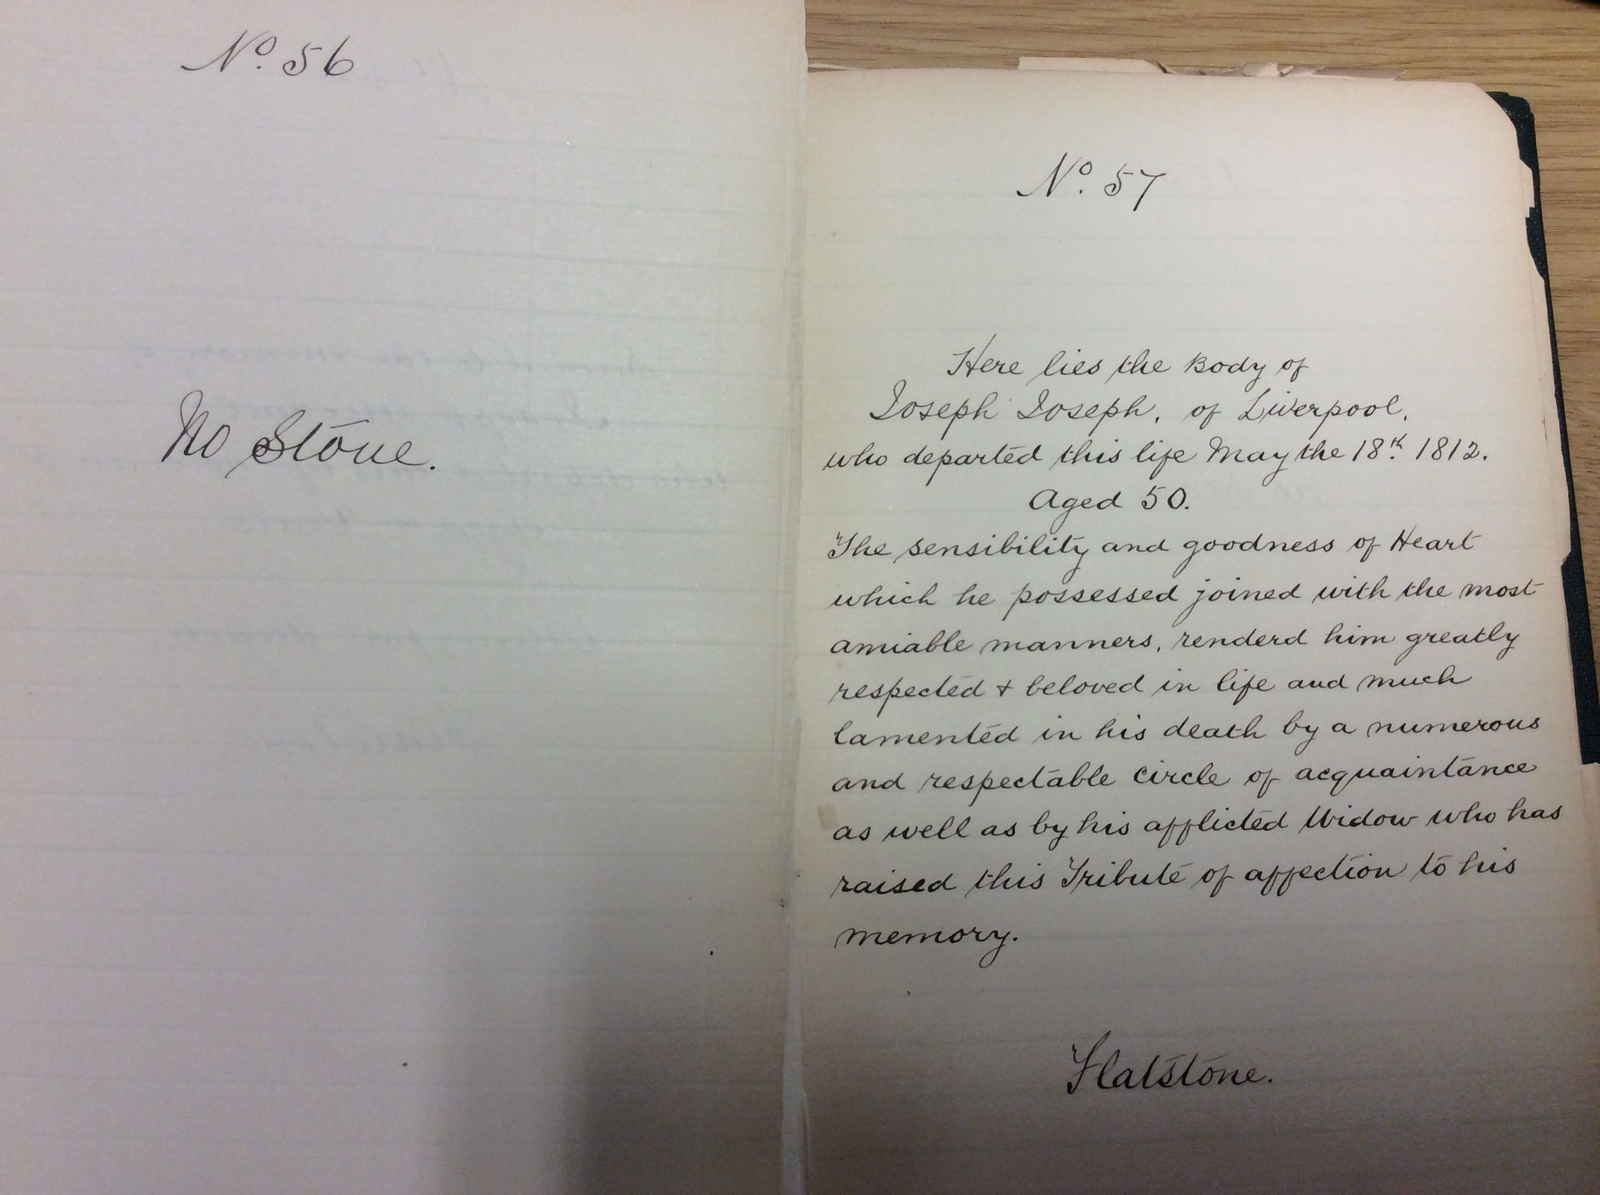 No. 56
No Stone.
No. 57
Here lies the Body of
Joseph Joseph, of Liverpool,
who departed this life May the 18th. 1812.
Aged 50.
The sensibility and goodness of Heart
which he possessed joined with the most
amiable manners, renderd him greatly
respected & beloved in life and much
lamented in his death by a numerous
and respectable circle of acquaintance
as well as by his afflicted Widow who has
raised this Tribute of affection to his
memory.
Flatstone.